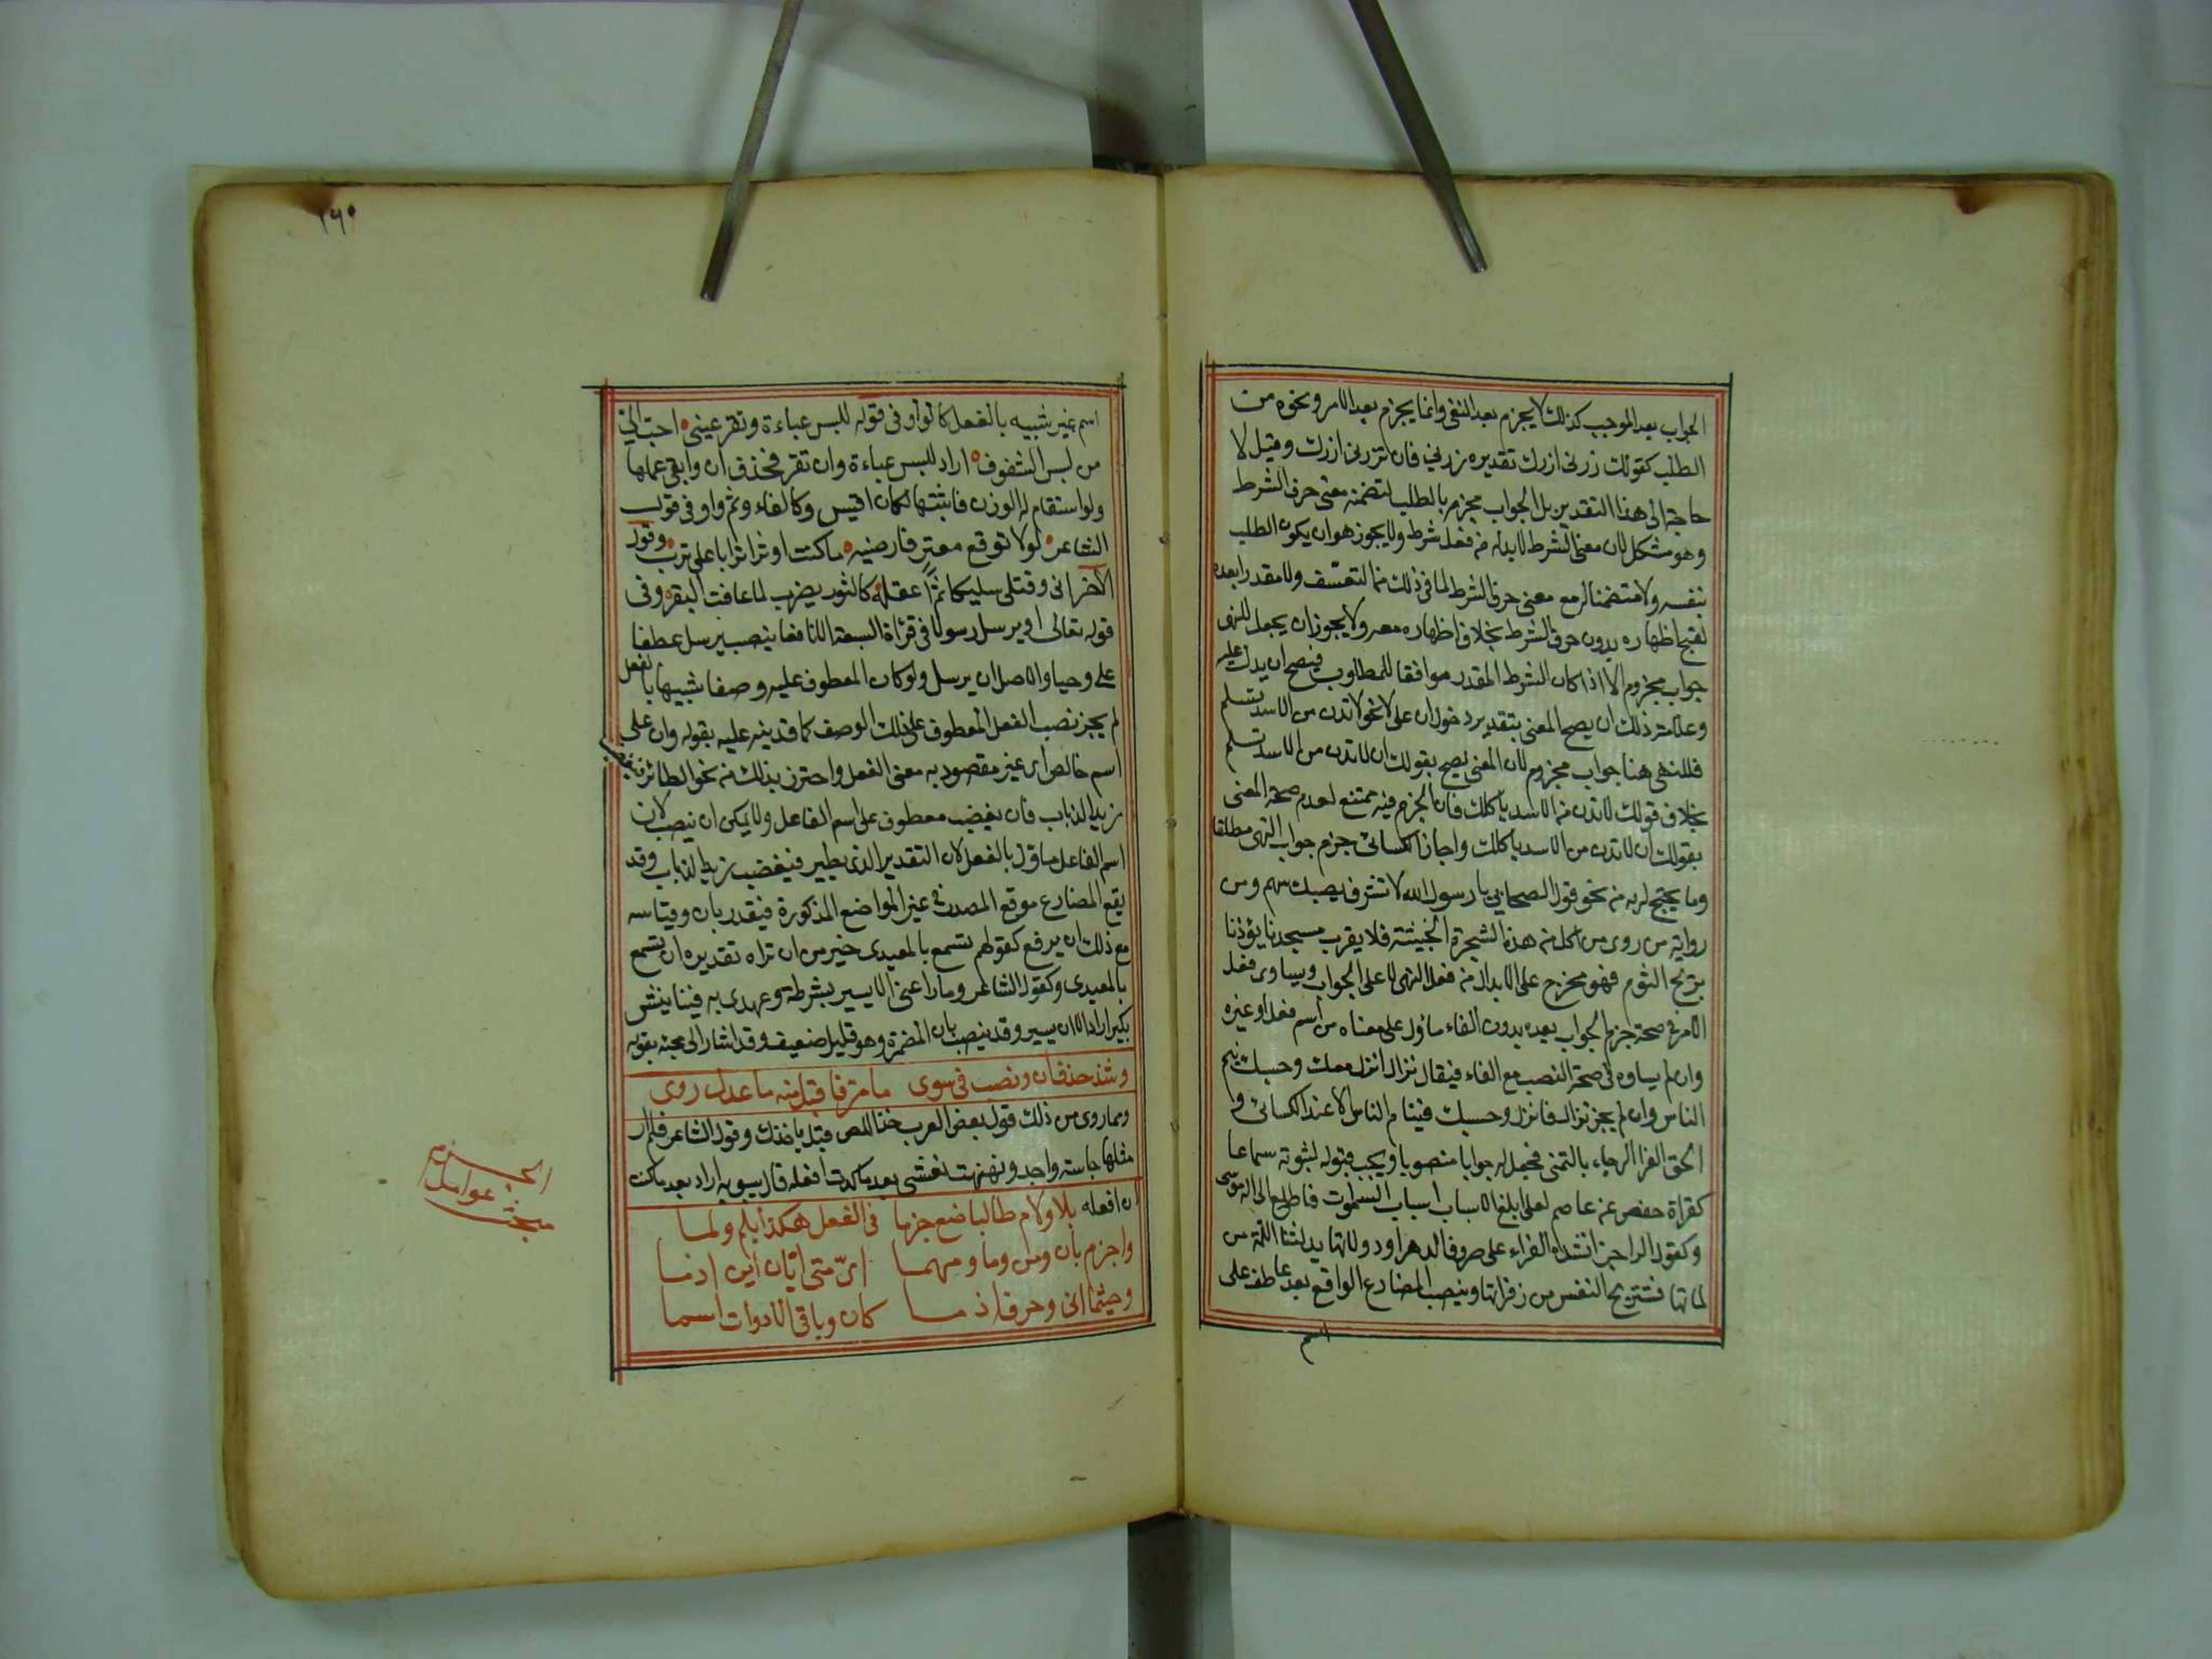 الجواب بعد الموجب كذلك لا يجزم بعد النفى وانما يجزم بعد الامر ونحوه من
الطلب كقولك زرنى ازرك تقديره زرنى فان تزرنى ازرك وقيل لا
حاجة الى هذا التقدير بل الجواب مجزم بالطلب لتضمنه معنى حرف الشرط
وهو مشكل لان معنى الشرط لابد له من فعل شرط ولا يجوز هو ان يكون الطلب
بنفسه ولا متضمنا له مع معنى حرف الشرط لما فى ذلك من التعسف ولا مقدرا بعده
لقبح اظهاره بدون حرف الشرط بخلاف اظهاره معه ولا يجوز ان يجعل للنهى
جواب مجزوم الا اذا كان الشرط المقدر موافقا للمطلوب فيصح ان يدل عليه
وعلامة ذلك ان يصح المعنى بتقدير دخول ان على لا نحو لا تدن من الاسد تسلم
فللنهى هنا جواب مجزوم لان المعنى يصح بقولك ان لا تدن من الاسد تسلم
بخلاف قولك لا تدن من الاسد ياكلك فان الجزم فيه ممتنع لعدم صحة المعنى
بقولك ان لا تدن من الاسد ياكلك واجاز الكسائى جزم جواب النهى مطلقا
وما يحتج له به من نحو قول الصحابى يا رسول الله لا تشرف يصبك سهم ومن
رواية من روى من اكل من هذه الشجرة الخبيثة فلا يقرب مسجدنا يؤذنا
بريح الثوم فهو مخرج على الابدال من فعل النهى لا على الجواب ويساوى فعل
الامر فى صحة جزم الجواب بعده بدون الفاء ما دل على معناه من اسم فعل او غيره
وان لم يساوه فى صحة النصب مع الفاء فيقال نزال انزل معك وحسبك ينم
الناس وان لم يجز نزال فانزل وحسبك فينام الناس الا عند الكسائى و
الحق الفرا الرجاء بالتمنى فجعل له جوابا منصوبا ويجب قبوله لثبوته سماعا
كقراة حفص عن عاصم لعلى ابلغ الاسباب اسباب السموات فاطلع الى اله موسى
وكقول الراجز انشده الفراء على صروف الدهر او دولاتها يدلننا اللمة من
لماتها فتستريح النفس من زفراتها وينصب المضارع الواقع بعد عاطف على
اسم
٢٦٠
اسم غير شبيه بالفعل كالواو فى قوله للبس عباءة وتقر عينى احب الى
من لبس الشفوف اراد للبس عباءة وان تقر فحذف ان وابقى عملها
ولو استقام له الوزن فاثبتها لكان اقيس وكالفاء وثم واو فى قول
الشاعر لولا توقع معتر فارضيه ما كنت اوثر اترابا على ترب وقول
الاخر انى وقتلى سليكا ثم اعقله كالثور يضرب لما عافت البقر وفى
قوله تعالى او يرسل رسولا فى قراة السبعة الا نافعا بنصب يرسل عطفا
على وحيا والاصل ان يرسل ولو كان المعطوف عليه وصفا شبيها بالفعل
لم يجز نصب الفعل المعطوف على ذلك الوصف كما قد ينبه عليه بقوله وان على
اسم خالص اى غير مقصود به معنى الفعل واحترز بذلك من نحو الطائر فيغضب
زيد الذباب فان يغضب معطوف على اسم الفاعل ولا يمكن ان ينصب لان
اسم الفاعل ماول بالفعل لان التقدير الذى يطير فيغضب زيد الذباب وقد
يقع المضارع موقع المصدر فى غير المواضع المذكورة فيقدر بان وقياسه
مع ذلك ان يرفع كقولهم تسمع بالمعيدى خير من ان تراه تقديره ان تسمع
بالمعيدى وكقول الشاعر وما راعنى الا يسير بشرطة وعهدى به فينا يفش
بكير اراد الا ان يسير وقد ينصب بان المضمرة وهو قليل ضعيف وقد اشار الى مجئه بقوله
وشذ حذف ان ونصب فى سوى ما مر فاقبل منه ما عدل روى
ومما روى من ذلك قول بعض العرب خذ اللص قبل ياخذك وقول الشاعر فلم ار
مثلها خباسة واحد ونهنهت نفسى بعد ما كدت افعله قال سيبويه اراد بعد ما كدت
ان افعله بلا ولام طالبا ضع جزما فى الفعل هكذا بلم ولما
واجزم بان ومن وما ومهما اى متى ايان اين اذ ما
وحيثما انى وحرف اذ ما كان وباقى الادوات اسما
مبحث عوامل الجزم